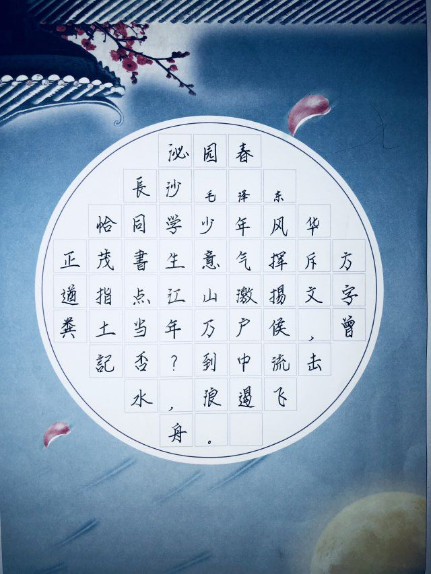 泌园春
長沙 毛泽东
恰同学少年风华
正茂書生意气揮斥方
遒指点江山激揚文字
粪土当年万户侯,曾
記否?到中流击
水,浪遏飞
舟。